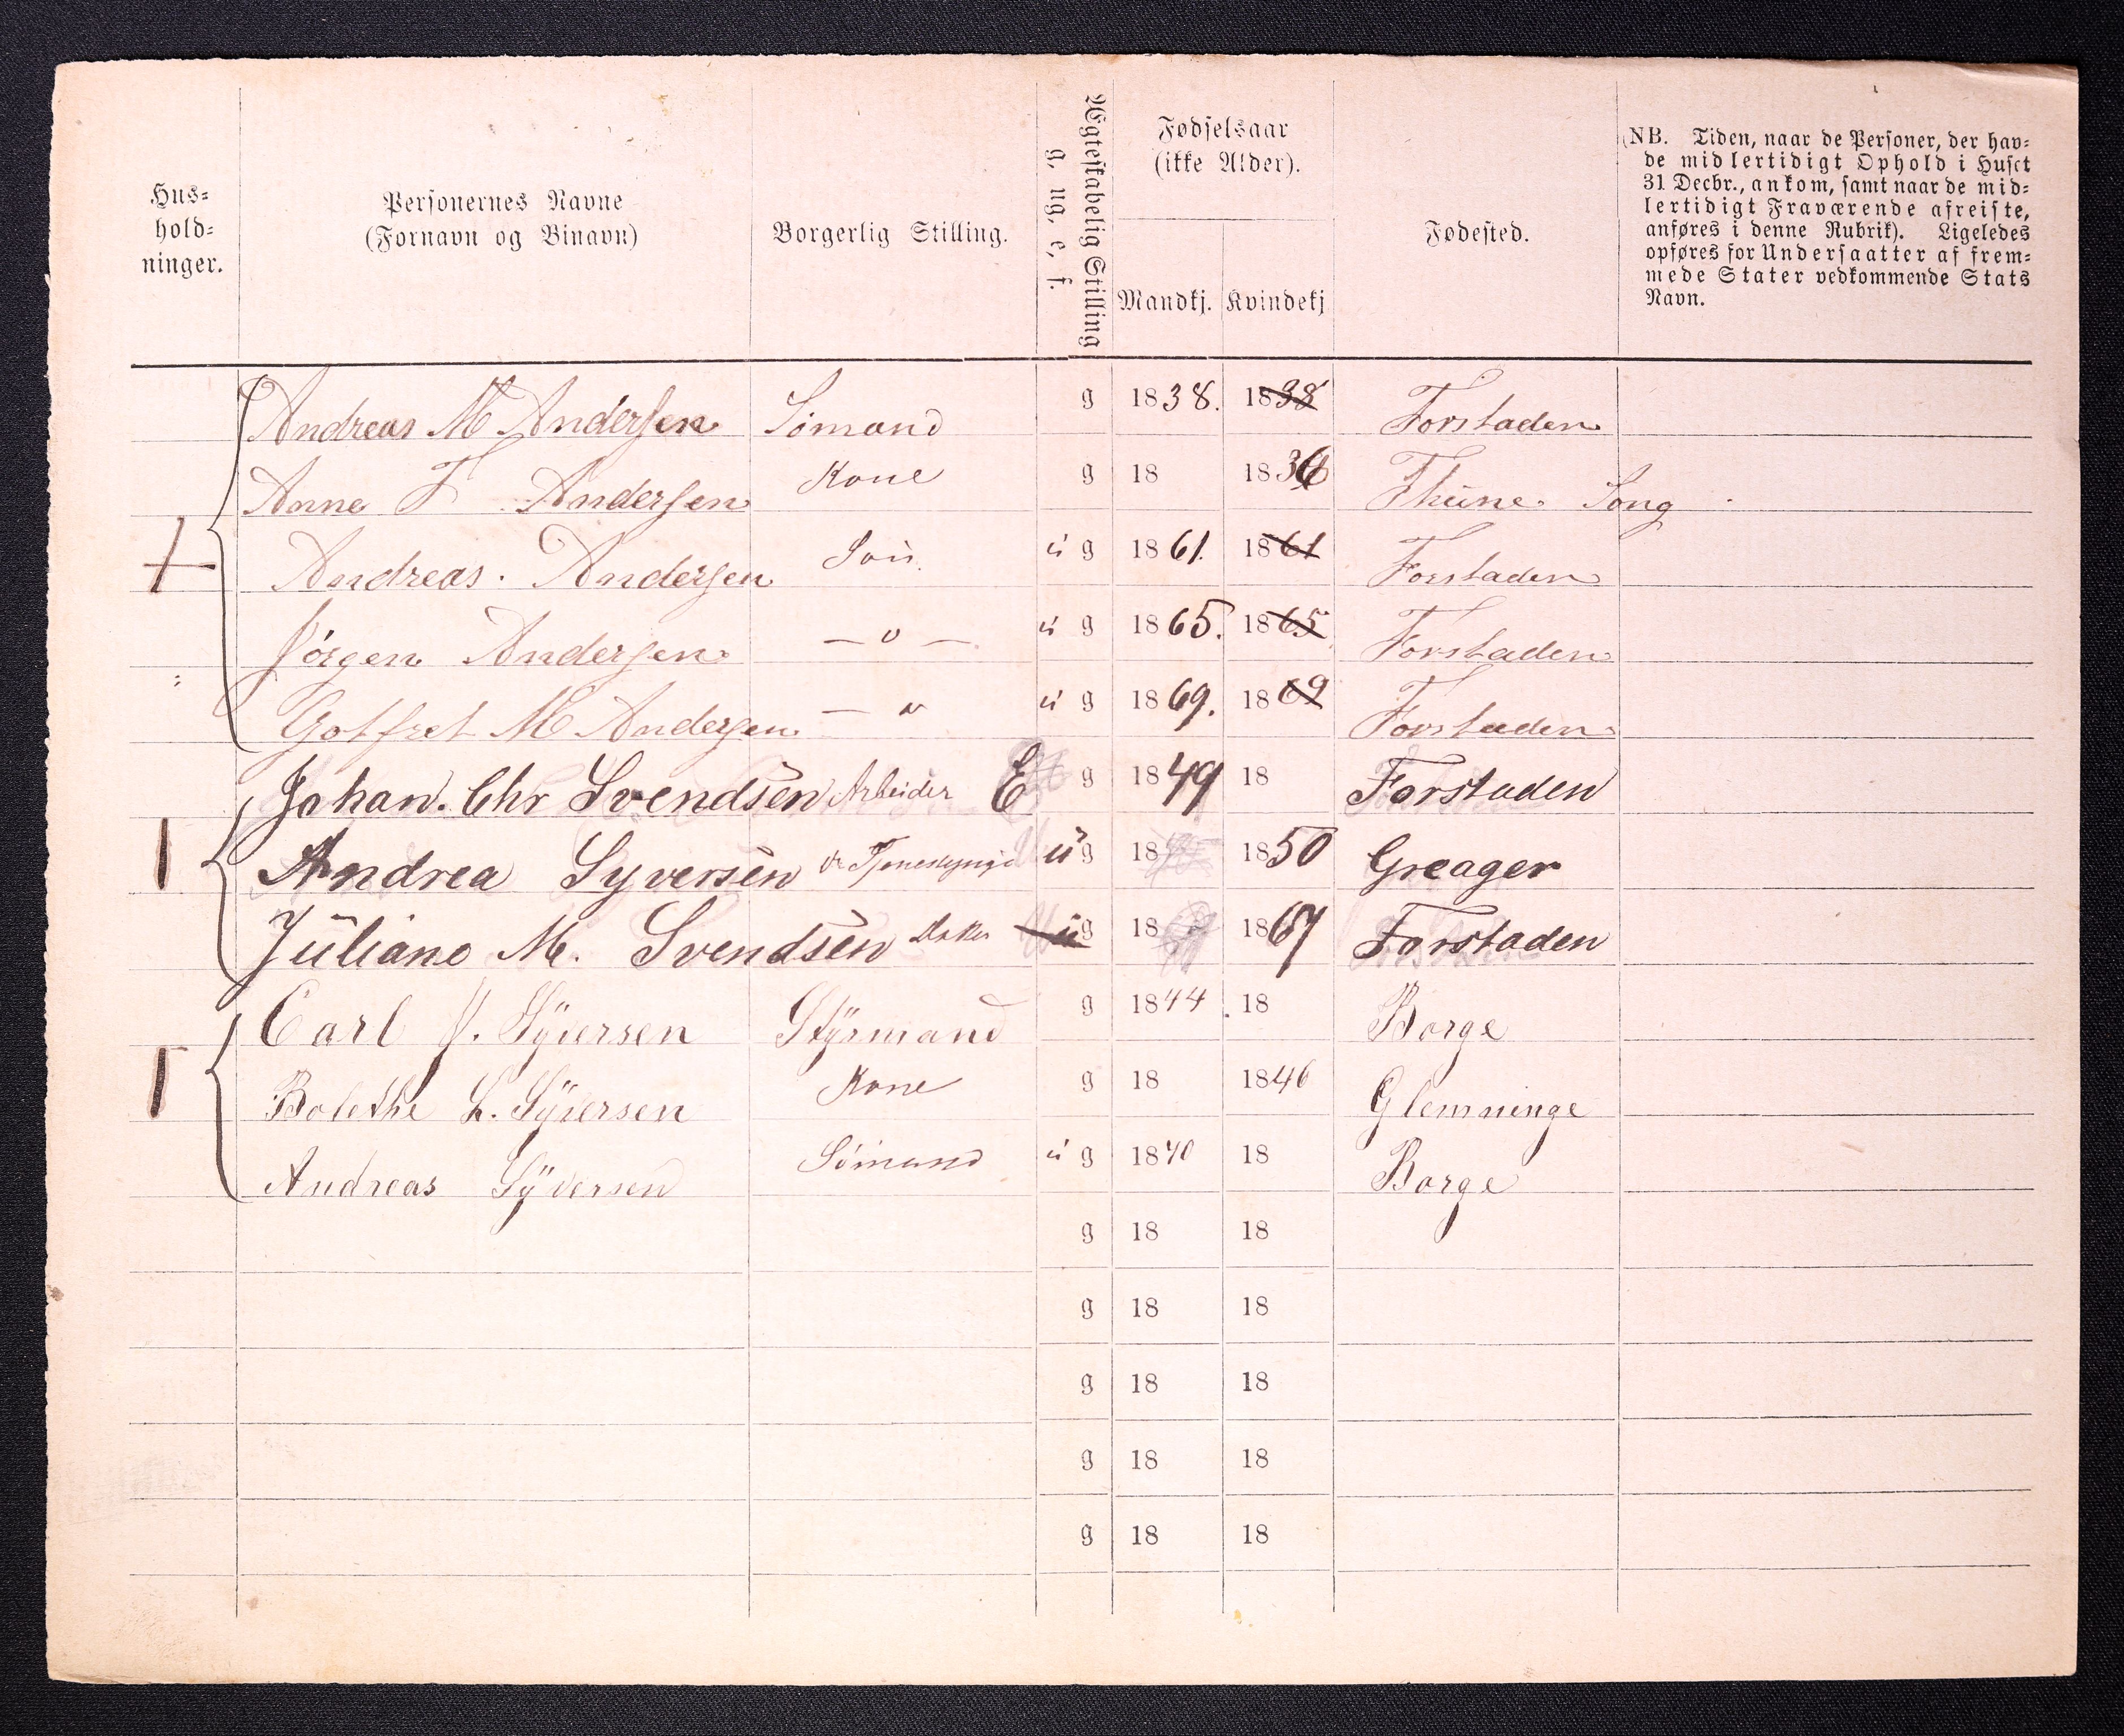 Hus-
hold-
ninger.
Personernes Navne
(Fornavn og Binavn)
Borgerlig Stilling.
Ægteskabelig Stilling
g, ug, e, f.
Fødselsaar
(ikke Alder).
Mandkj. Kvindekj
Fødested.
(NB. Tiden, naar de Personer, der hav-
de midlertidigt Ophold i Huset
31 Decbr., ankom, samt naar de mid-
lertidigt Fraværende afreiste,
anføres i denne Rubrik). Ligeledes
opføres for Undersaatter af frem-
mede Stater vedkommende Stats
Navn.
Andreas M Andersen Sömand g 1838. 1838 Forstaden
Anne F Andersen Kone g 18 1836 Thune Song
Andreas. Andersen Søn ug 1861. 1861 Forstaden
Jörgen Andersen — " — ug 1865. 1865 Forstaden
Gotfret M Andersen — " ug 1869. 1869 Forstaden
Johan. Chr Svendsen Arbeider E g 1849 18 Forstaden
Andrea Syversen ug 18 1850 Greager
Juliane M. Svendsen ug 18 1867 Forstaden
Carl J. Syversen Styrmand g 1844 18 Borge
Bolethe L. Syversen Kone g 18 1846 Glemminge
Andreas Syversen Sömand ug 1840 18 Borge
g 18 18
g 18 18
g 18 18
g 18 18
g 18 18